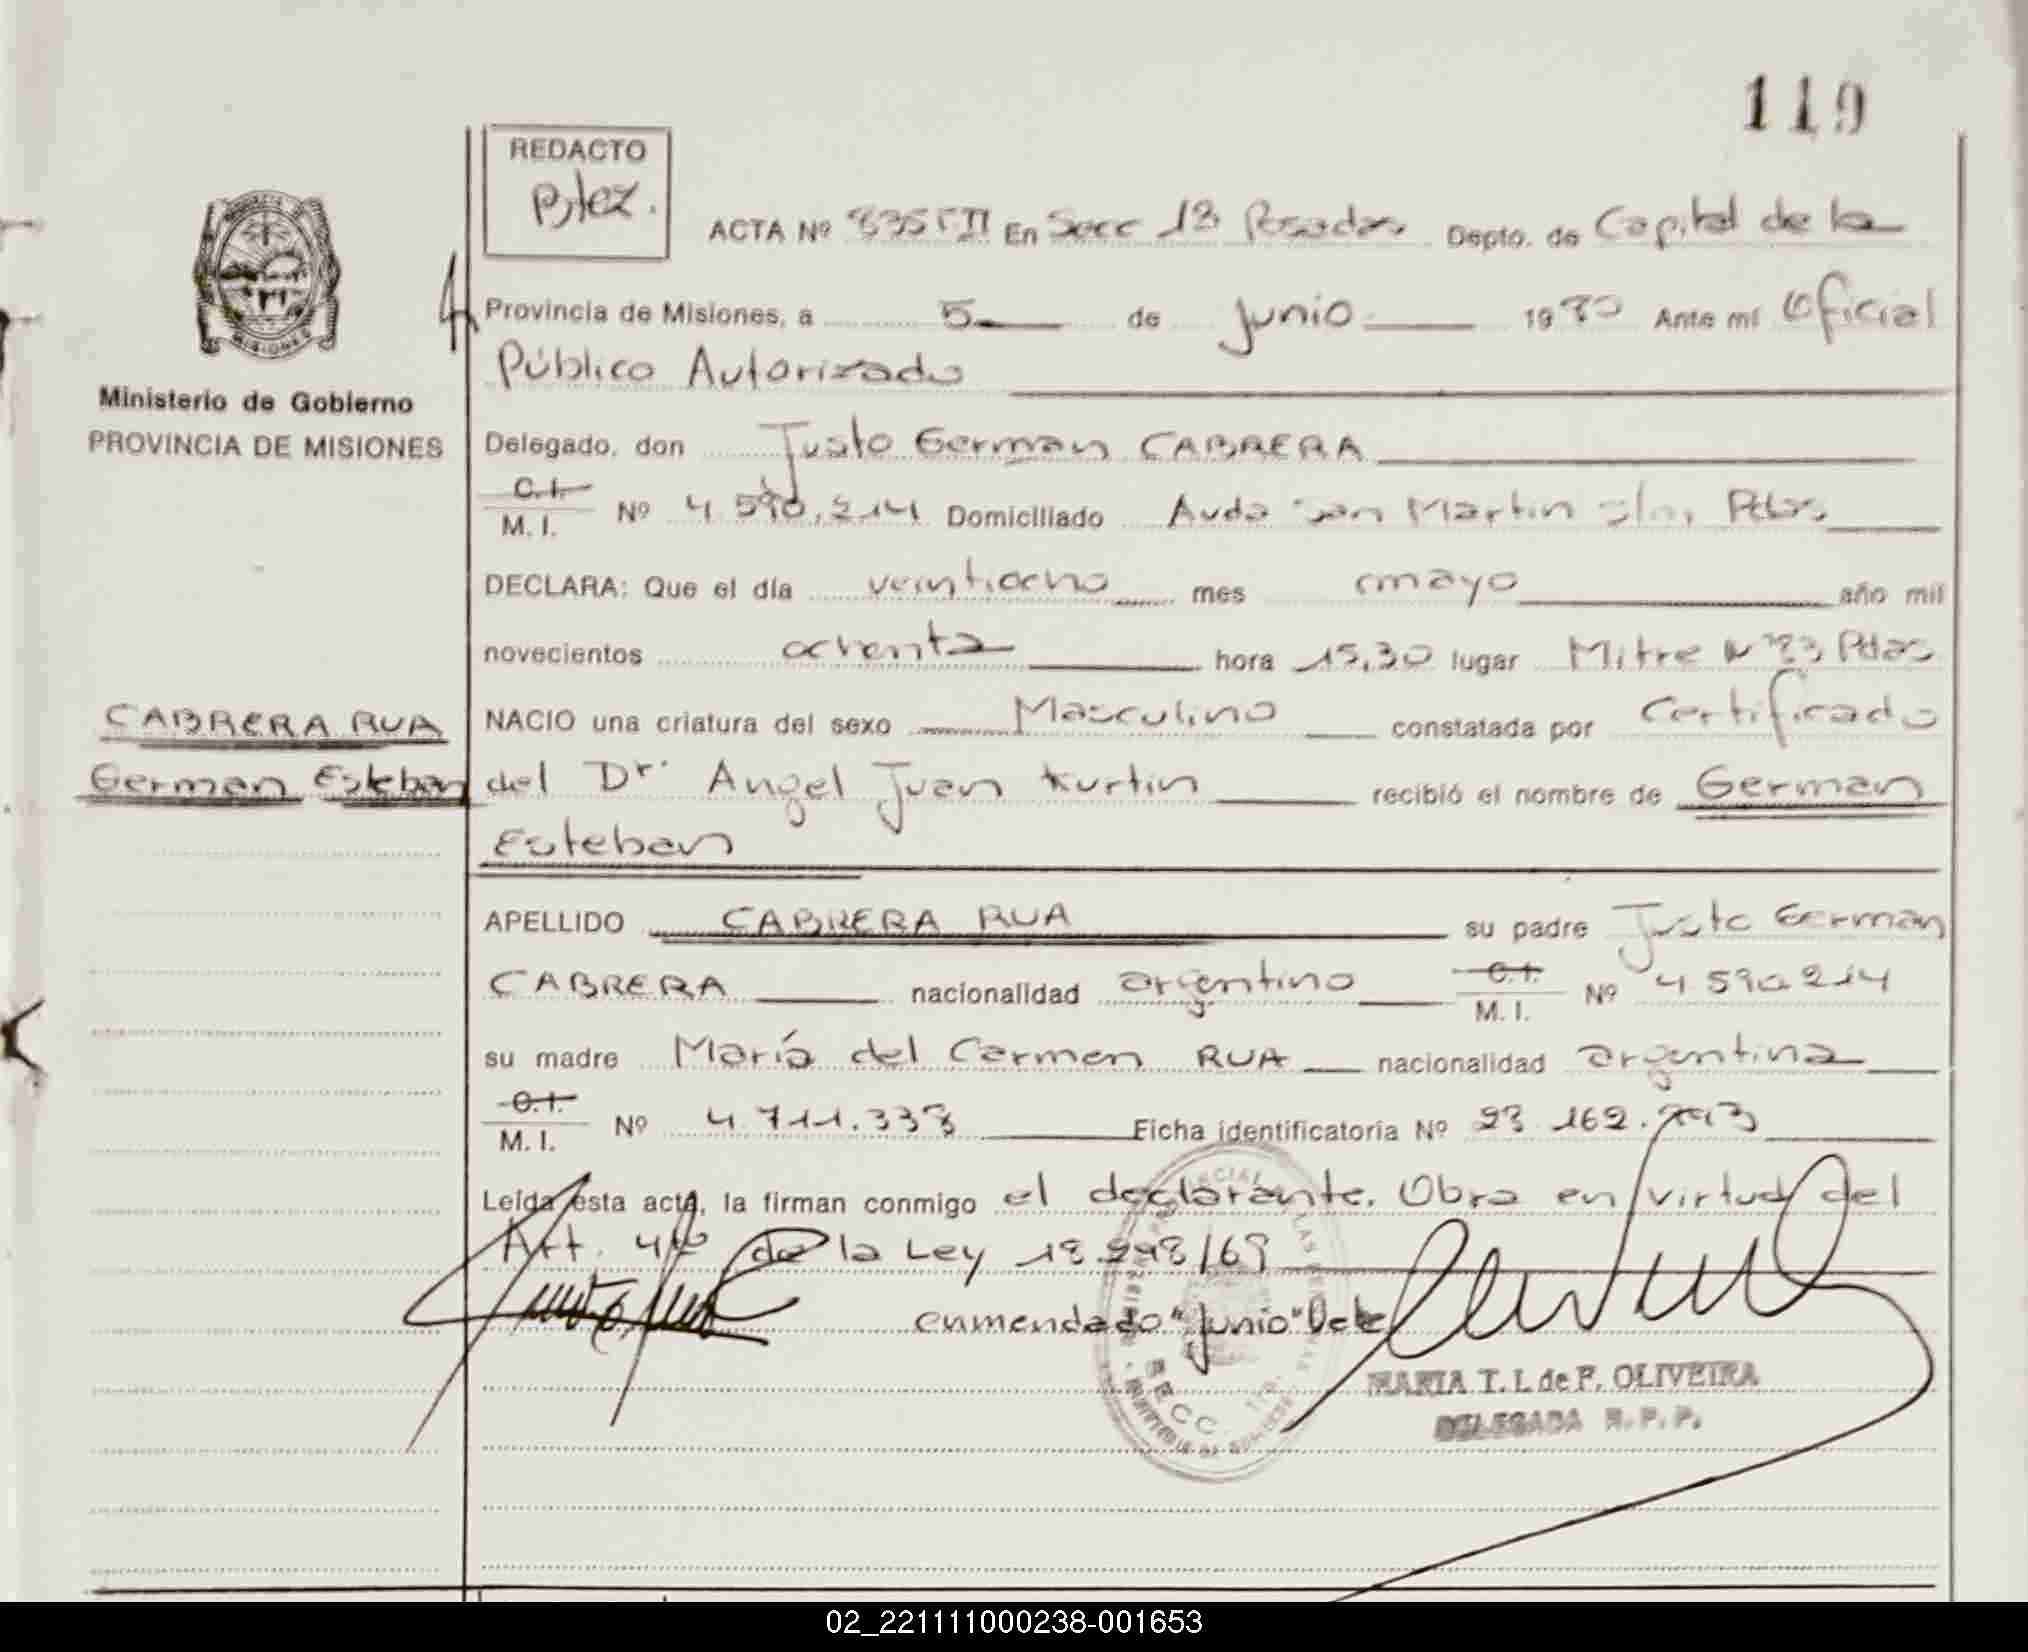 119
REDACTO
ACTA Nº 835 TII En Secc 1ª Posadas Depto. de Capital de la
Provincia de Misiones, a 5 de Junio 1980 Ante mí Oficial
Público Autorizado
Ministerio de Gobierno
PROVINCIA DE MISIONES
MISIONES
Delegado, don Justo German CABRERA
C.I.
M. I. Nº 4.590.214 Domiciliado Avda San Martin s/n, Pdas
DECLARA: Que el día veintiocho mes mayo año mil
novecientos ochenta hora 15,30 lugar Mitre Nº 23 Pdas
CABRERA RUA
German Esteban
NACIO una criatura del sexo Masculino constatada por Certificado
del Dr. Angel Juan Kurtin recibió el nombre de German
Esteban
APELLIDO CABRERA RUA su padre Justo German
CABRERA nacionalidad argentino C.I. M. I. Nº 4.590.214
su madre María del Carmen RUA nacionalidad argentina
C.I.
M. I. Nº 4.711.338 Ficha identificatoria Nº 23.162.713
Leída esta acta, la firman conmigo el declarante. Obra en virtud del
Art. 4º de la Ley 18.248/69
enmendado "Junio" Vale
MARIA T. I. de F. OLIVEIRA
DELEGADA R. P. P.
02_221111000238-001653